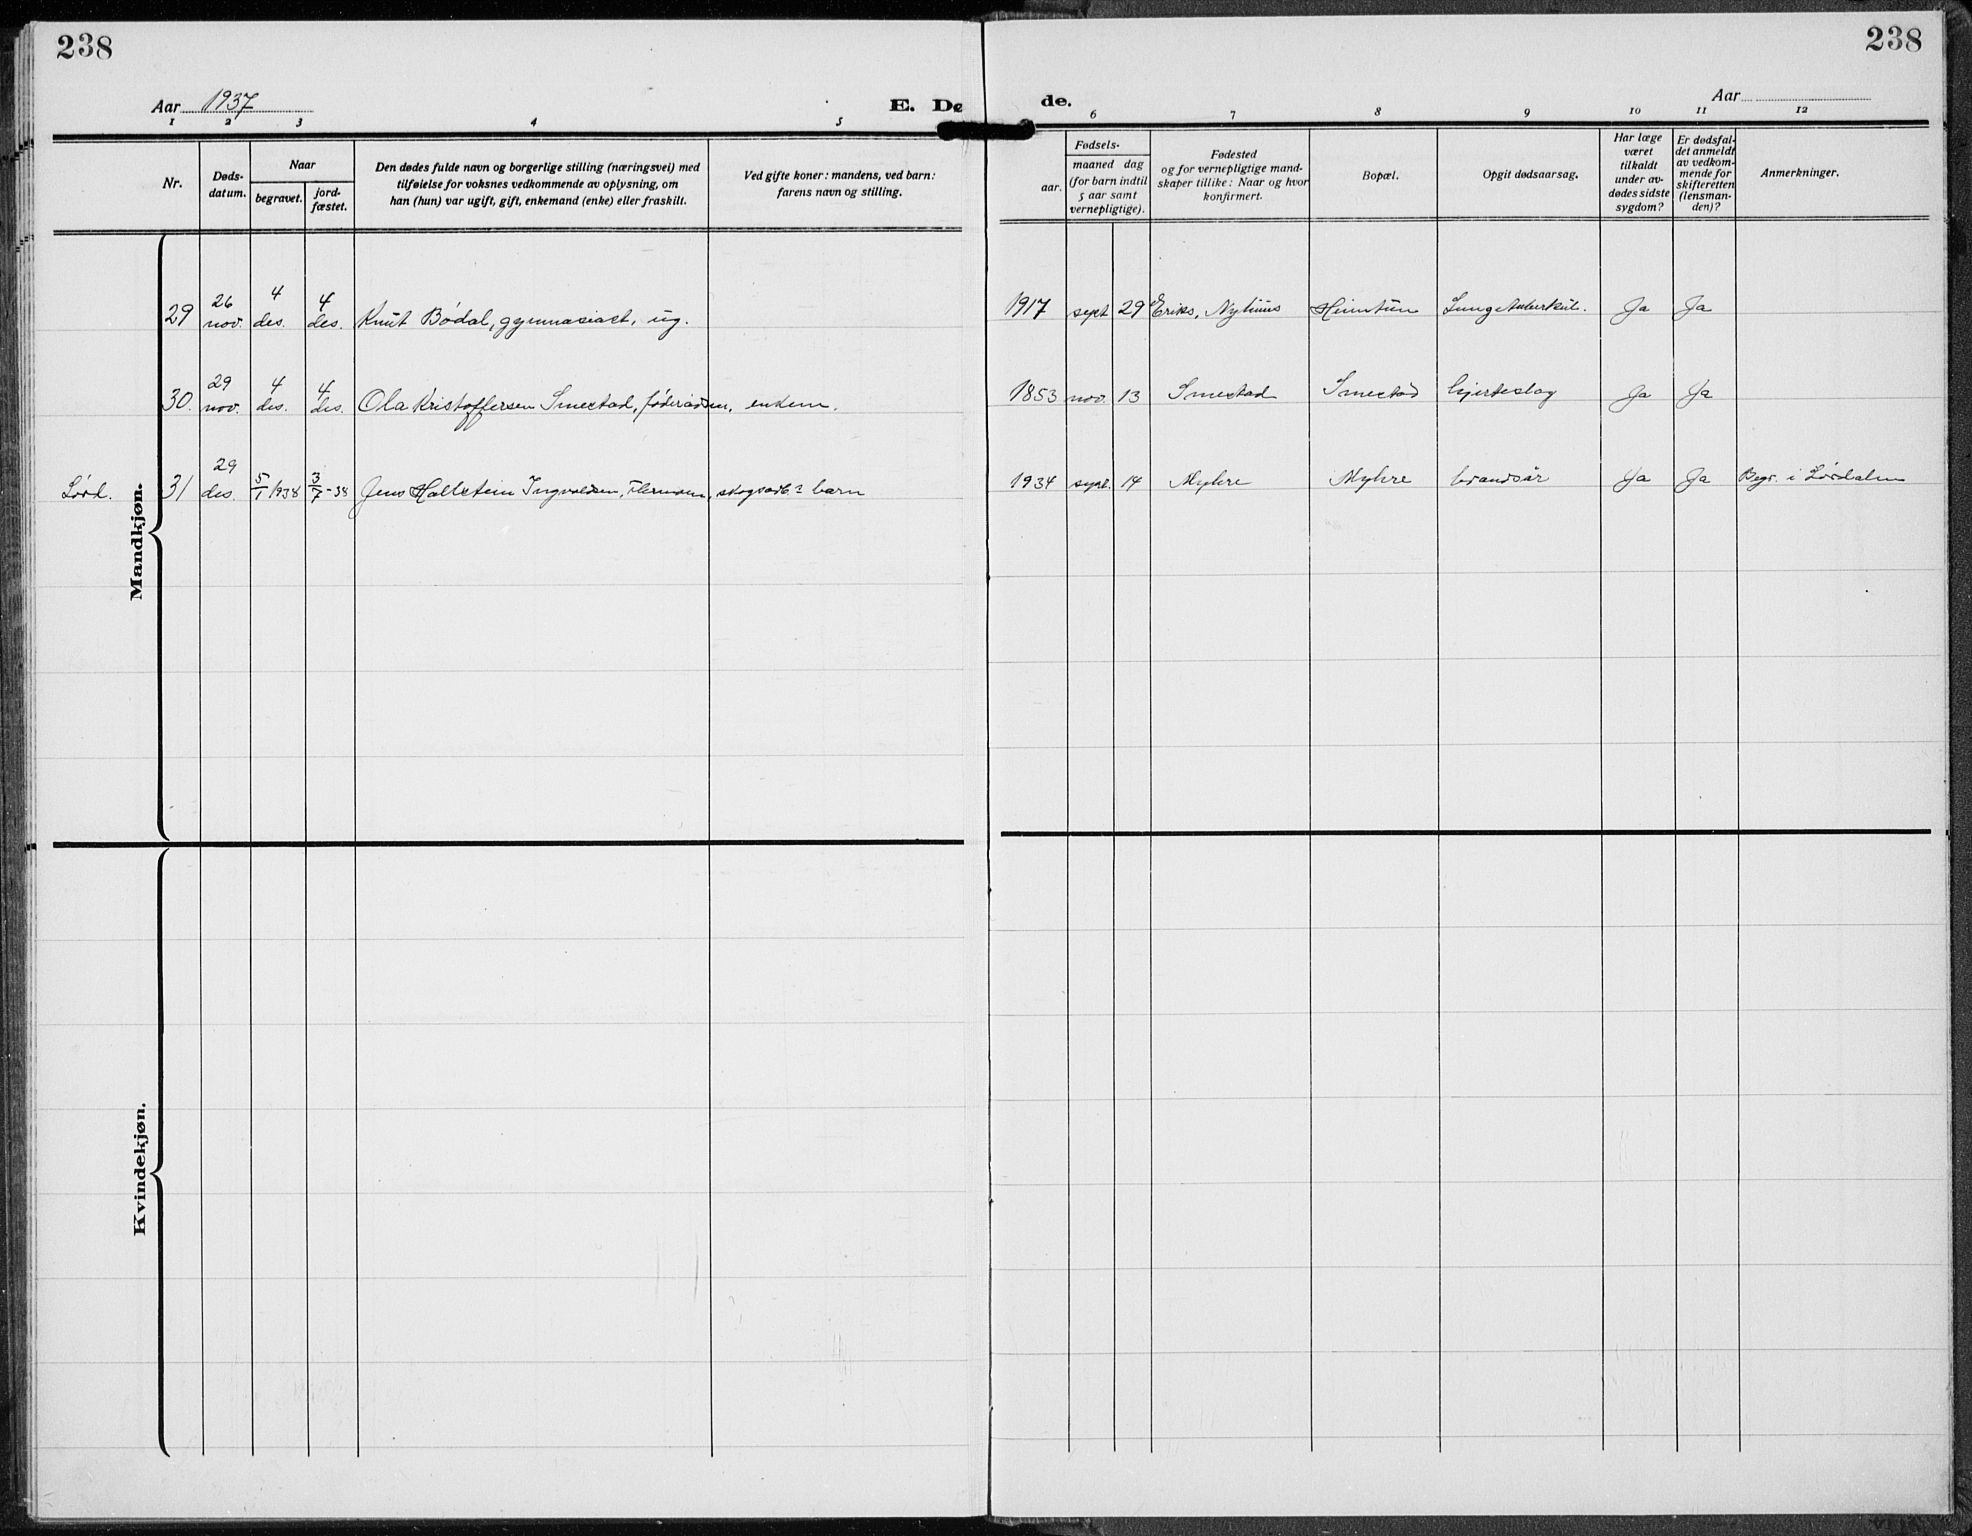 238
238
Aar 1937
E. Dø
de.
Aar
1 2 3 4 5
6 7 8 9 10 11 12
Nr.
Døds-
datum.
Naar
begravet.
jord-
fæstet.
Den dødes fulde navn og borgerlige stilling (næringsvei) med
tilføielse for voksnes vedkommende av oplysning, om
han (hun) var ugift, gift, enkemand (enke) eller fraskilt.
Ved gifte koner: mandens, ved barn:
farens navn og stilling.
aar.
Fødsels-
maaned dag
(for barn indtil
5 aar samt
vernepligtige).
Fødested
og for vernepligtige mand-
skaper tillike: Naar og hvor
konfirmert.
Bopæl.
Opgit dødsaarsag.
Har læge
været
tilkaldt
under av-
dødes sidste
sygdom?
Er dødsfal-
det anmeldt
av vedkom-
mende for
skifteretten
(lensman-
den)?
Anmerkninger.
Mandkjøn.
29 26 nov. 4 des. 4 des. Knut Bødal, gymnasiast, ug. 1917 sept 29 Eriks, Nyhuus Heimtun Lungetuberkul. Ja Ja
30. 29 nov. 4 des. 4 des. Ola Kristoffersen Smestad, føderådsm, enkem. 1853 nov. 13 Smestad Smestad hjerteslag Ja Ja
Lørd. 31 29 des. 5/1 1938 3/7-38 Jens Hallstein Ingvaldsen, skogsarb. barn 1934 sept. 14 Myhre Myhre brandsår Ja Ja Begr. i Lørdalen
Kvindekjøn.